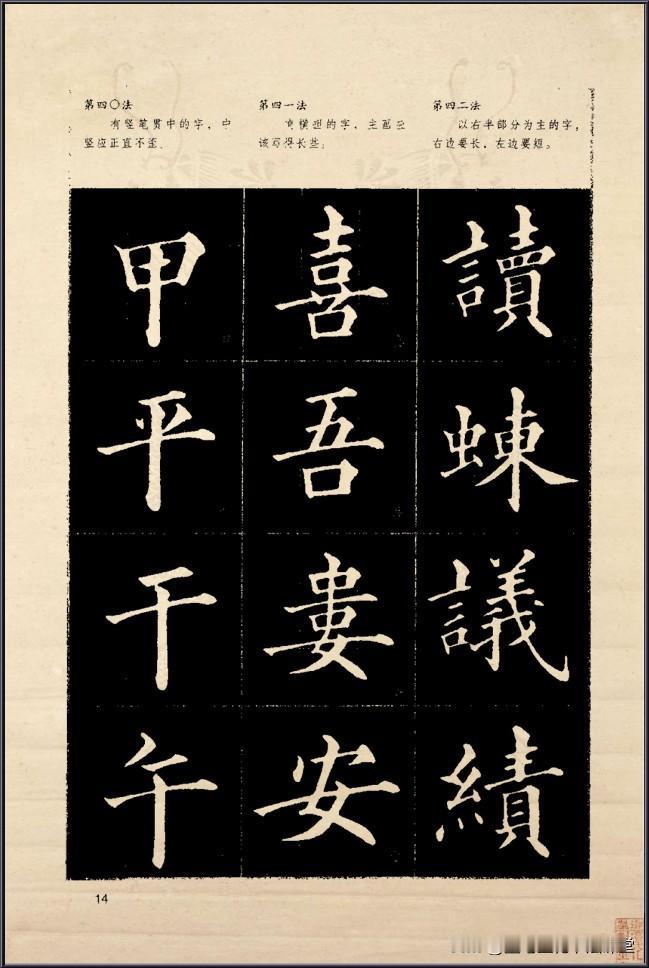 第四〇法
有竖笔贯中的字，中
竖应正直不歪．
第四一法
有横担的字，主画应
该写得长些；
第四二法
以右半部分为主的字，
右边要长，左边要短。
甲 喜 讀
平 吾 蝀
干 婁 議
午 安 績
14